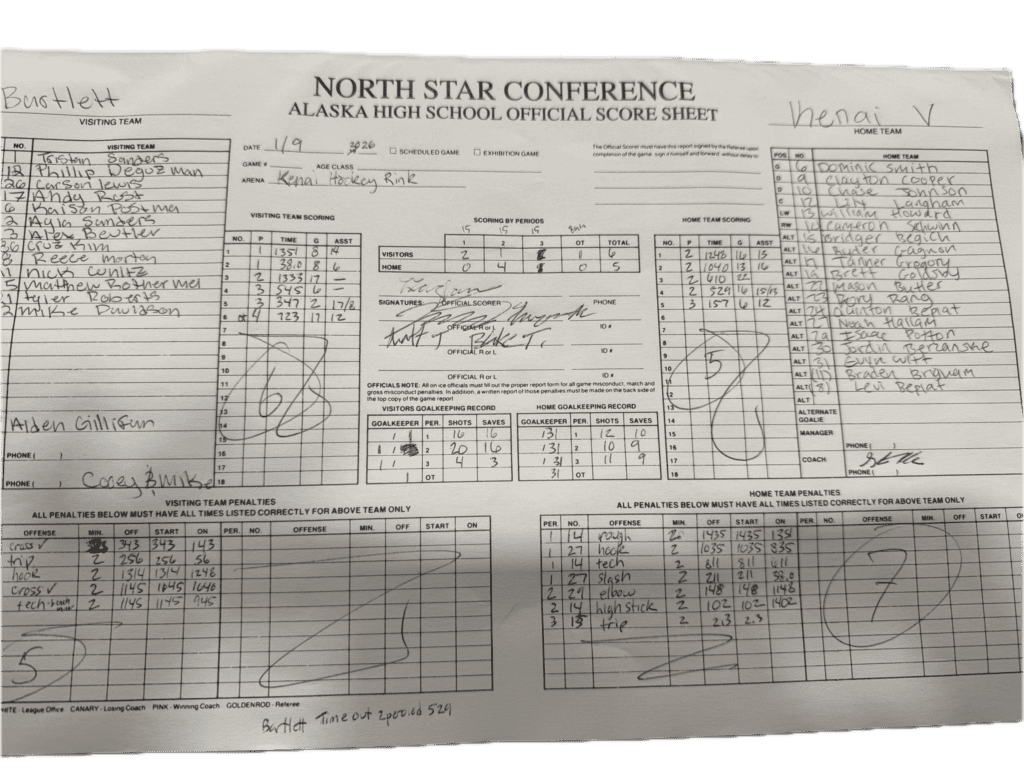 NORTH STAR CONFERENCE
ALASKA HIGH SCHOOL OFFICIAL SCORE SHEET
Bartlett
VISITING TEAM
Kenai V
HOME TEAM
DATE 1/9 2026 ☐ SCHEDULED GAME ☐ EXHIBITION GAME
GAME # AGE CLASS
ARENA Kenai Hockey Rink
The Official Scorer must have this report signed by the Referee upon
NO. VISITING TEAM
1 Tristan Sanders
12 Phillip Deguzman
26 Carson lewis
17 Andy Rust
6 Kaison Postma
2 Ayla Sanders
3 Alex Beutler
Cruz Kim
8 Reece Morton
Nick Cunitz
5 Matthew Bothermel
Tyler Roberts
2 Mike Davidson
Alden Gilligan
PHONE ( )
PHONE ( ) Corey & Mike
VISITING TEAM SCORING
NO. P TIME G ASST
1 1 1351 8 14
2 1 38.0 8 6
3 2 1333 17 —
4 3 545 6 —
5 3 347 2 17/8
6 OT 4 723 17 12
7
8
9
10
11
12
13
14
15
16
17
18
6
SCORING BY PERIODS
15 15 15 8min
1 2 3 OT TOTAL
VISITORS 2 1 1 6
HOME 0 4 1 0 5
SIGNATURES: OFFICIAL SCORER PHONE
OFFICIAL R or L ID #
OFFICIAL R or L ID #
OFFICIAL R or L ID #
OFFICIALS NOTE: All on ice officials must fill out the proper report form for all game misconduct, match and
gross misconduct penalties. In addition, a written report of those penalties must be made on the back side of
the top copy of the game report
VISITORS GOALKEEPING RECORD
GOALKEEPER PER. SHOTS SAVES
1 1 1 16 16
1 2 20 16
1 1 3 4 3
1 OT
HOME GOALKEEPING RECORD
GOALKEEPER PER. SHOTS SAVES
31 1 12 10
31 2 10 9
31 3 11 9
31 OT
HOME TEAM SCORING
NO. P TIME G ASST
1 2 1248 16 13
2 2 1040 13 16
3 2 610 22
4 2 529 16 15/13
5 3 157 6 12
6
7
8
9
10
11
12
13
14
15
16
17
18
5
POS. NO. HOME TEAM
G 6 Dominic Smith
D 9 Clayton Cooper
D 10 Chase Johnson
C 12 Lily Langham
LW 13 William Howard
RW 14 Cameron Schwinn
ALT 15 Bridger Begich
ALT 16 Ryder Gagnon
ALT 17 Tanner Gregory
ALT 19 Brett Goldsby
ALT 22 Mason Butler
ALT 23 Rory Rang
ALT 24 Quinton Repiat
ALT 27 Noah Hallam
ALT 29 Isaac Patton
ALT 30 Jordin Berzanske
ALT 31 Evyn Witt
ALT (11) Braden Brigham
ALT (8) Levi Repiat
ALT
ALTERNATE
GOALIE
MANAGER
PHONE ( )
COACH
PHONE ( )
VISITING TEAM PENALTIES
ALL PENALTIES BELOW MUST HAVE ALL TIMES LISTED CORRECTLY FOR ABOVE TEAM ONLY
OFFENSE MIN. OFF START ON PER. NO. OFFENSE MIN. OFF START ON
cross ✓ 343 343 143
trip 2 256 256 56
hook 2 1314 1314 1248
cross ✓ 2 1145 1045 1040
tech 2 1145 1145 945
5
HOME TEAM PENALTIES
ALL PENALTIES BELOW MUST HAVE ALL TIMES LISTED CORRECTLY FOR ABOVE TEAM ONLY
PER. NO. OFFENSE MIN. OFF START ON PER. NO. OFFENSE MIN. OFF START O
1 14 rough 2 1435 1435 1351
1 27 hook 2 1035 1035 835
1 14 tech 2 811 811 611
1 27 slash 2 211 211 38.0
2 29 elbow 2 148 148 1148
2 14 high stick 2 102 102 1402
3 15 trip 2 2.3 2.3
7
HITE - League Office CANARY - Losing Coach PINK - Winning Coach GOLDENROD - Referee
Bartlett Time out 2period 529